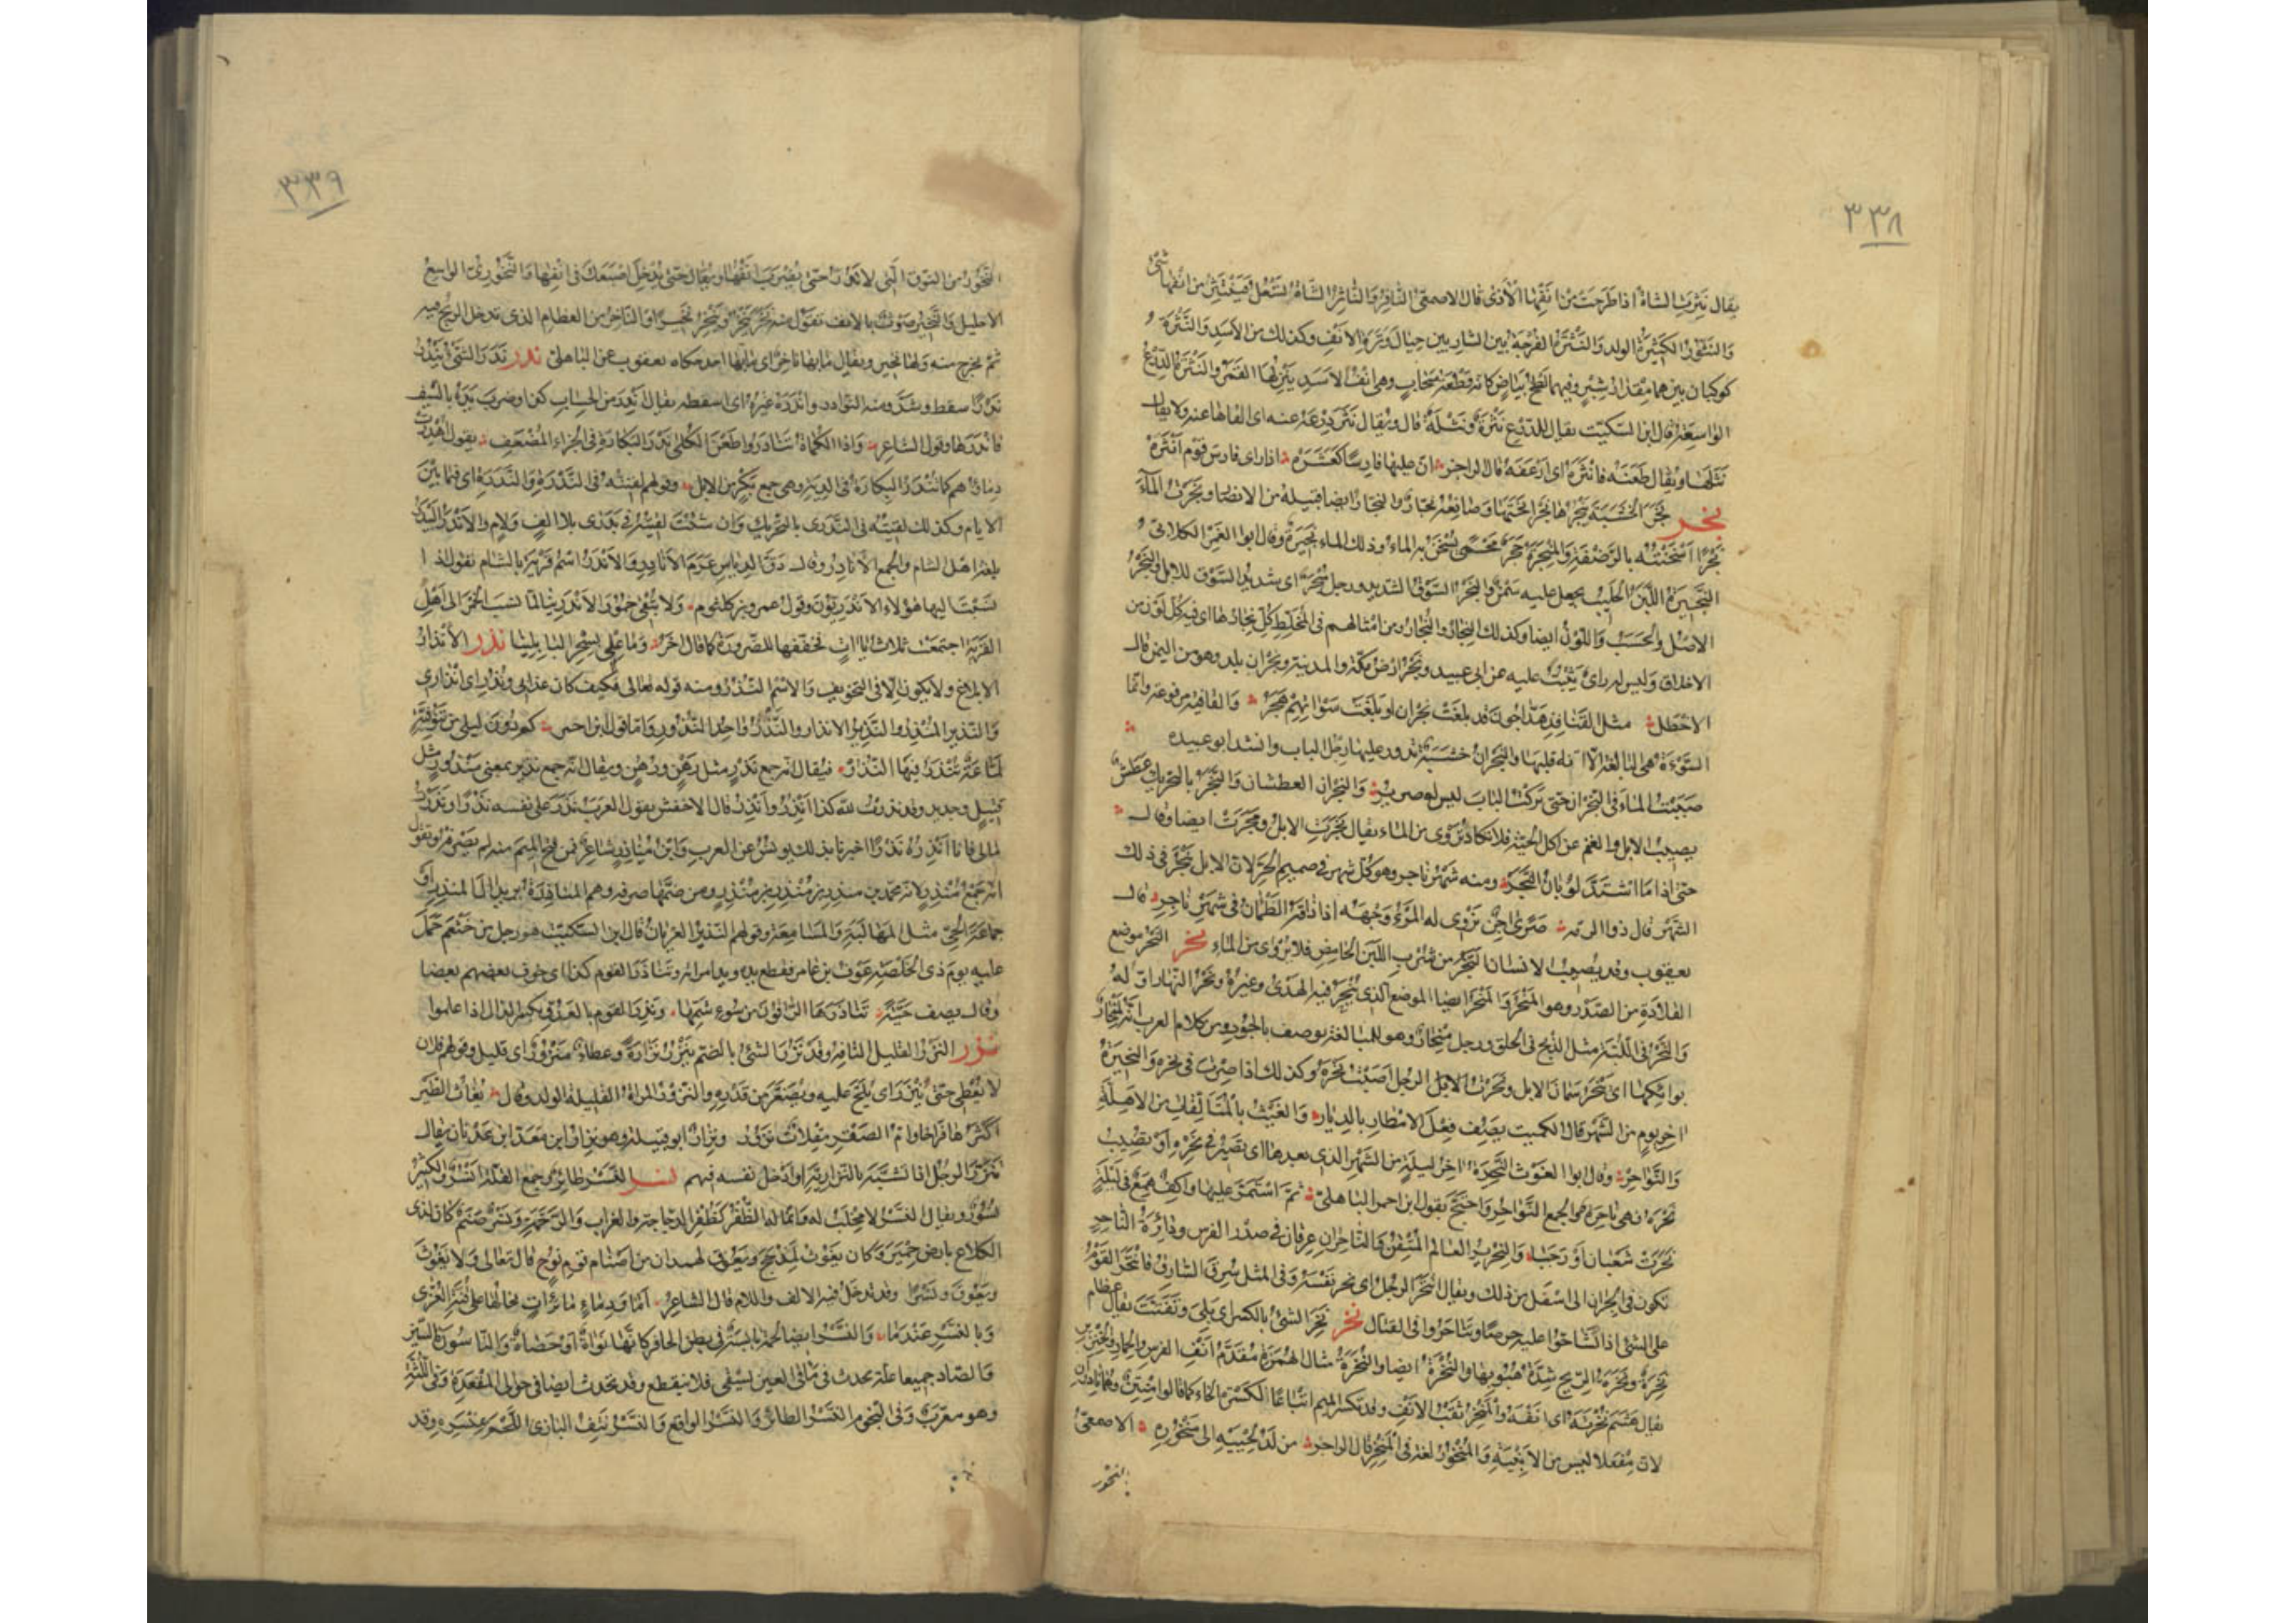 ٣٣٨
يقال نثرت الشاة اذا طرحت من انفها الاذى قال الاصمعي النافر والناثر الشاة تسعل فينتثر من انفها شئ
والنثور الكثيرة الولد والنثرة الفرجة بين الشاربين حيال وترة الانف وكذلك من الاسد والنثرة
كوكبان بينهما مقدار شبر وفيهما لطخ بياض كانه قطعة سحاب وهي انف الاسد ينزلها القمر والنثرة الدرع
الواسعة قال ابن السكيت يقال للدرع نثرة ونثلة قال ويقال نثر درعه عنه اى القاها عنه ولا يقال
نثلها ويقال طعنه فانثره اى ارعفه قال الراجز ان عليها فارسا كعشره اذا راى فارس قوم انثره
نجر نجر الخشبة ينجرها نجرا نحتها وصانعه نجار والنجار ايضا قبيلة من الانصار ونجرت الماء
نجرا اسخنته بالرضفة والمنجرة حجر محمى يسخن به الماء وذلك الماء نجيرة وقال ابو الغمر الكلابي
النجيرة اللبن الحليب يجعل عليه سمن والنجر السوق الشديد ورجل منجر اى شديد السوق للابل والنجر
الاصل والحسب واللون ايضا وكذلك النجار والنجار ومن امثالهم في المخلط كل نجار ابل نجارها اى فيه كل لون من
الاخلاق وليس له راى يثبت عليه عن ابي عبيد ونجر ارض مكة والمدينة ونجران بلد وهو من اليمن قال
الاخطل مثل القنافذ هداجون قد بلغت نجران او بلغت سوآتهم هجر والقافية مرفوعة وانما
السوءة هي البالغة الا انه قلبها والنجران خشبة تدور عليها رجل الباب وانشد ابو عبيده
صببت الماء في النجران حتى تركت الباب ليس له صرير والنجران العطشان والنجر بالتحريك عطش
يصيب الابل والغنم عن اكل الحبة فلا تكاد تروى من الماء يقال نجرت الابل ومجرت ايضا وقال
حتى اذا ما اشتد لوبان النجر ومنه شهر ناجر وهو كل شهر في صميم الحر لان الابل تنجر في ذلك
الشهر قال ذوالرمة صرى آجن يزوى له المرء وجهه اذا ذاقه الظمآن في شهر ناجر قال
يعقوب وقد يصيب الانسان النجر من شرب اللبن الحامض فلا يروى من الماء نحر النحر موضع
القلادة من الصدر وهو المنحر والمنحر ايضا الموضع الذى ينحر فيه الهدى وغيره ونحر النهار اوله
والنحر في اللبة مثل الذبح في الحلق ورجل منحار وهو للمبالغة يوصف بالجود ومن كلام العرب انه لمنحار
بوائكها اى ينحر سمان الابل ونحرت الابل الرجل اصبت نحره وكذلك اذا صرت في نحره والنحيرة
آخر يوم من الشهر قال الكميت يصف فعل الامطار بالديار والغيث بالمتألقات من الاهلة
والنواحر وقال ابو الغوث النحيرة آخر ليلة من الشهر الذى بعدها اى تصير في نحره او تصيب
نحره فهي ناحرة والجمع النواحر واحتج بقول ابن احمر الباهلي ثم استمر عليها واكف همع في ليلة
نحرت شعبان او رجبا والنحرير العالم المتقن والناحران عرقان في صدر الفرس ودائرة الناحر
تكون في الجران الى اسفل من ذلك ويقال انتحر الرجل اى نحر نفسه وفي المثل سرق السارق فانتحر القوم
على الشئ اذا تشاحوا عليه حرصا وتناحروا في القتال نخر نخر الشئ بالكسر اى بلى وتفتت يقال عظام
نخرة ونخرة الريح شدة هبوبها والنخرة ايضا والنخرة مثال الهمزة مقدم انف الفرس والحمار والخنزير
يقال هشم نخرته اى انفه والمنخر ثقب الانف وقد تكسر الميم اتباعا لكسرة الخاء كما قالوا منتن وهما نادران
لان مفعلا ليس من الابنية والمنخور لغة في المنخر قال الراجز من لد لحييه الى منخوره الاصمعي
النخور
٣٣٩
النخور من النوق التى لا تدر حتى يضرب انفها ويقال حتى تدخل اصبعك في انفها والنخورى الواسع
الاحليل والنخير صوت بالانف تقول منه نخر ينخر وينخر نخيرا والناخر من العظام الذى تدخل الريح فيه
ثم تخرج منه ولها نخير ويقال ما بها ناخر اى ما بها احد حكاه يعقوب عن الباهلي ندر ندر الشئ يندر
ندرا سقط وشذ ومنه النوادر واندره غيره اى اسقطه يقال اندر من الحساب كذا وضرب يده بالسيف
فاندرها وقول الشاعر واذا الكماة تنادروا طعن الكلى ندر البكارة في الجزاء المضعف يقول اهدرت
دماؤهم كما تندر البكارة في الدية وهي جمع بكر من الابل وقولهم لقيته في الندرة والندرة اى فيما بين
الايام وكذلك لقيته في الندرى بالتحريك وان شئت لقيته في ندرى بلا الف ولام والاندر البيدر
بلغة اهل الشام والجمع الانادر وقال دق الدياس عرم الانادر والاندر اسم قرية بالشام تقول اذا
نسبت اليها هؤلاء الاندريون وقول عمرو بن كلثوم ولا تبقي خمور الاندرينا لما نسب الخمر الى اهل
القرية اجتمعت ثلاث ياآت فخففها للضرورة كما قال اخر وما علمي بسحر البابلينا نذر الانذار
الابلاغ ولا يكون الا في التخويف والاسم النذر ومنه قوله تعالى فكيف كان عذابي ونذر اى انذارى
والنذير المنذر والنذير الانذار والنذر واحد النذور واما قول ابن احمر كم دون ليلى من تنوفية
لماعة تنذر فيها النذر فيقال انه جمع نذر مثل رهن ورهن ويقال انه جمع نذير بمعنى منذور مثل
قتيل وجديد وقد نذرت لله كذا انذر وانذر قال الاخفش يقول العرب نذر على نفسه نذرا ونذرت
مالي فانا انذره نذرا اخبرنا بذلك يونس عن العرب وابن مناذر شاعر فمن فتح الميم منه لم يصرفه وتقول
انه جمع منذر لانه محمد بن منذر بن منذر بن منذر ومن ضمها صرفه وهم المناذرة يريد آل المنذر او
جماعة الحي مثل المهالبة والمسامعة وقولهم النذير العريان قال ابن السكيت هو رجل من خثعم حمل
عليه يوم ذى الخلصة عوف بن عامر فقطع يده ويد امراته وتناذر القوم كذا اى خوف بعضهم بعضا
وقال يصف حية تناذرها الراقون من سوء سمها ونذر القوم بالعدو بكسر الذال اذا علموا
نزر النزر القليل التافه وقد نزر الشئ بالضم ينزر نزارة وعطاء منزور اى قليل وقولهم فلان
لا يعطي حتى ينزر اى يلح عليه ويصغر من قدره والنزور المراة القليلة الولد وقال بغاث الطير
اكثرها فراخا وام الصقر مقلات نزور ونزار ابو قبيلة وهو نزار ابن معد ابن عدنان يقال
تنزر الرجل اذا تشبه بالنزارية او ادخل نفسه فيهم نسر النسر طائر وجمع القلة انسر والكثير
نسور ويقال النسر لا مخلب له وانما له الظفر كظفر الدجاجة والغراب والرخمة ونسر صنم كان لذى
الكلاع بارض حمير وكان يغوث لمذحج ويعوق لهمدان من اصنام قوم نوح قال تعالى ولا يغوث
ويعوق ونسرا وقد تدخل فيه الالف واللام قال الشاعر اما ودماء مائرات تخالها على قنة العزى
وبالنسر عندما والنسر ايضا لحمة يابسة في بطن الحافر كانها نواة او حصاة والناسور بالسين
والصاد جميعا علة تحدث في مآقي العين يسقي فلا ينقطع وقد تحدث ايضا في حوالي المقعدة وفي اللثة
وهو معرب وفي النجوم النسر الطائر والنسر الواقع والنسر نتف البازى اللحم بمنسره وقد